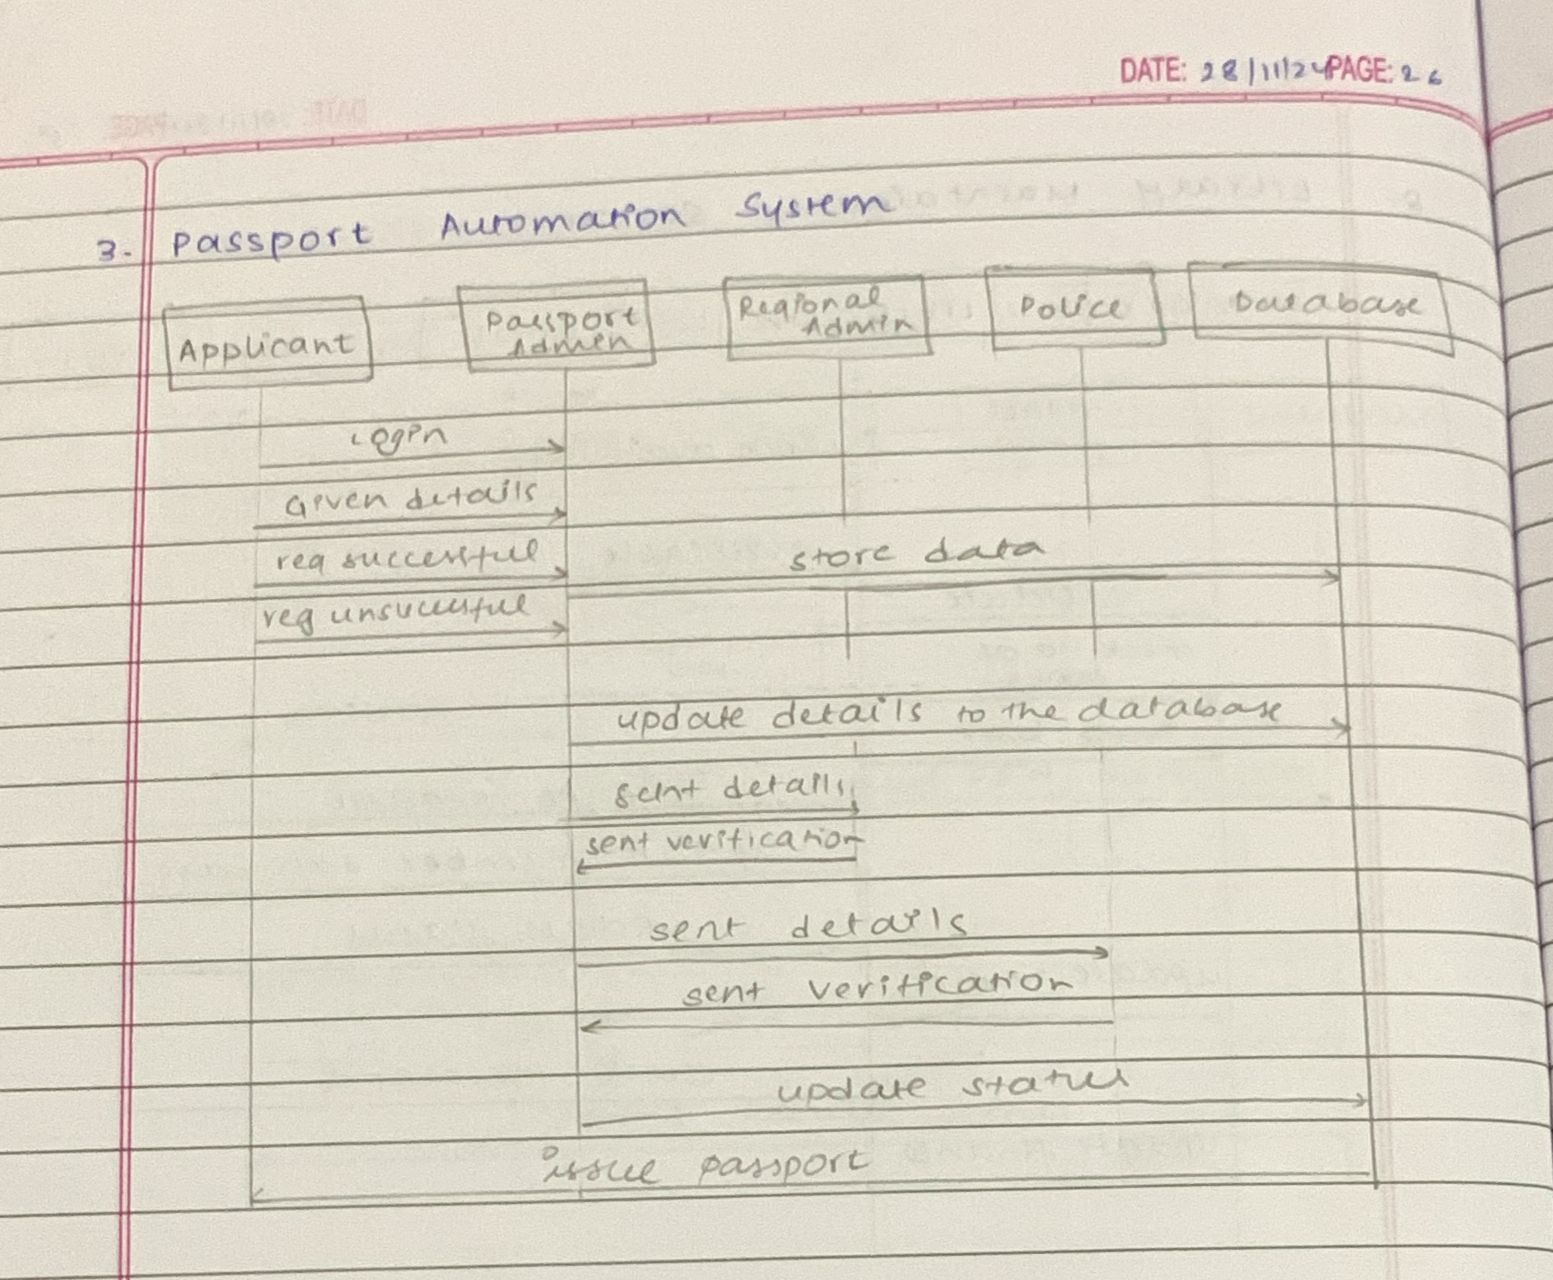 DATE: 28/11/24 PAGE: 26
3. Passport Automation System
Applicant
Passport
Admin
Regional
Admin
Police
Database
Login
Given details
reg successful
store data
reg unsuccessful
update details to the database
sent details
sent verification
sent details
sent verification
update status
issue passport